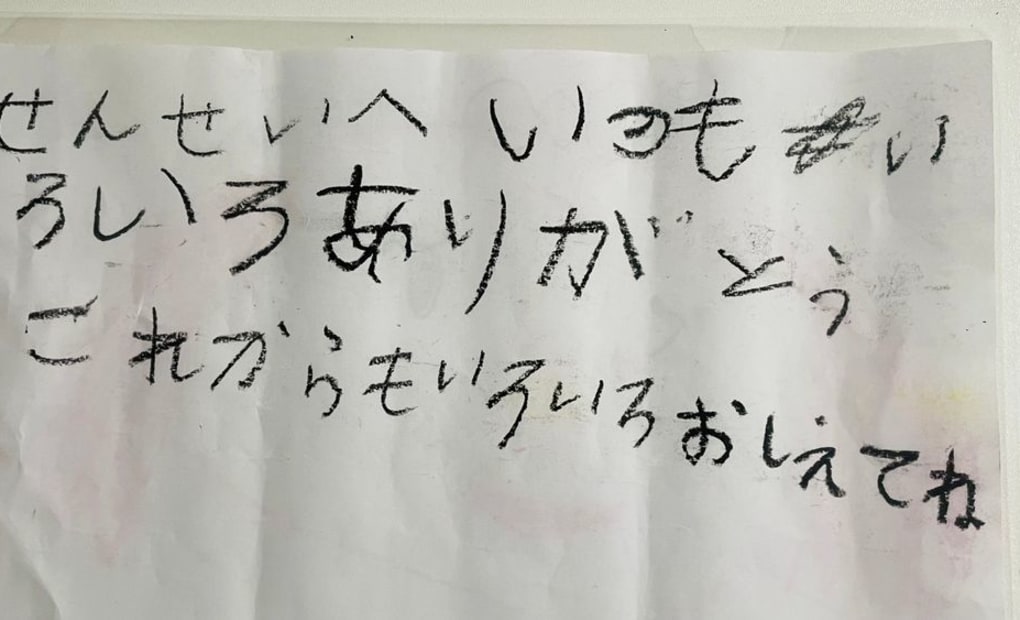 せんせいへ いつも い
ろいろありがとう
これからもいろいろおしえてね